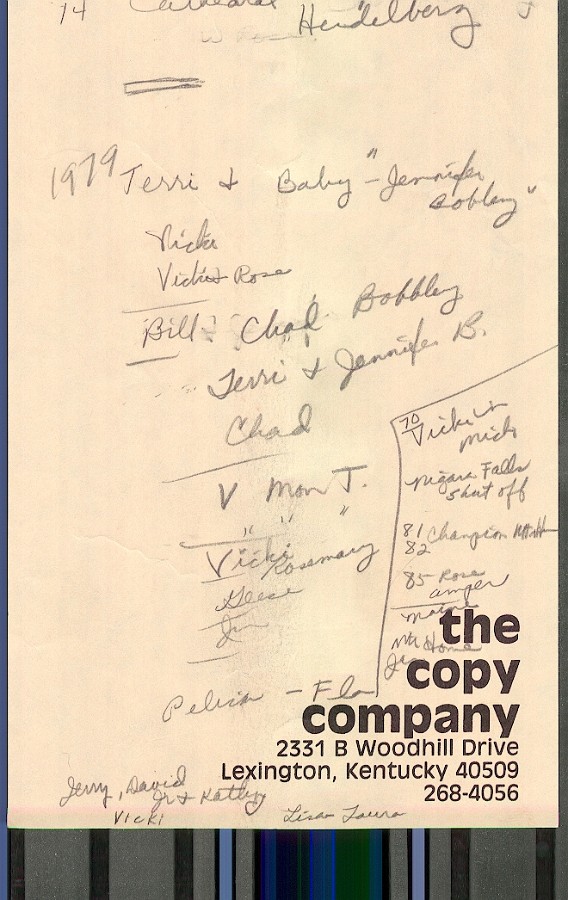 74 Cathedral Heidelberg
1979 Terri & Baby "-Jennifer
Bobbley"
Vicki
Vicki & Rose
Bill: Chad Bobbley
Terri & Jennifer B.
Chad
V Mon T.
" " "
Vicki Rosemary
Geese
Jim
Pelican - Fla
70
Vicki in
Mich
Niagara Falls
shut off
81 Champion
82
85 Rose
camper
Maine
Mt Home
the
copy
company
2331 B Woodhill Drive
Lexington, Kentucky 40509
268-4056
Jerry, David
Jr & Kathy
Vicki
Lisa Laura